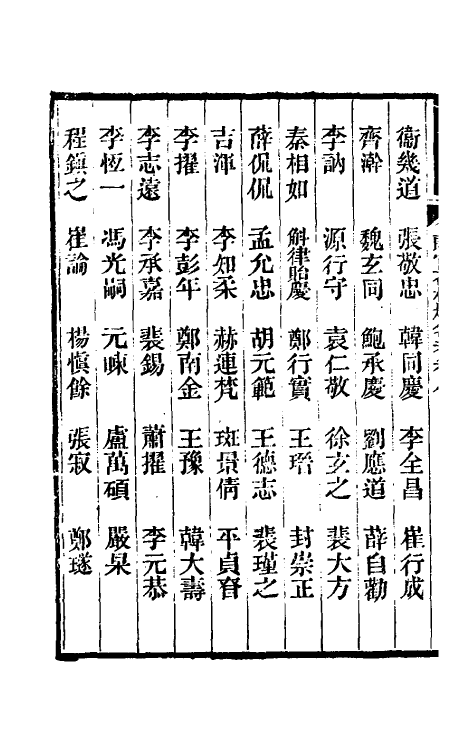 衞幾道 張敬忠 韓同慶 李全昌 崔行成
齊澣 魏玄同 鮑承慶 劉應道 薛自勸
李訥 源行守 袁仁敬 徐玄之 裴大方
秦相如 斛律貽慶 鄭行實 王瑨 封崇正
薛侃侃 孟允忠 胡元範 王德志 裴瑾之
吉渾 李知柔 赫連梵 班景倩 平貞眘
李擢 李彭年 鄭南金 王豫 韓大壽
李志遠 李承嘉 裴錫 蕭擢 李元恭
李恆一 馮光嗣 元暕 盧萬碩 嚴杲
程鎮之 崔論 楊愼餘 張寂 鄭璲